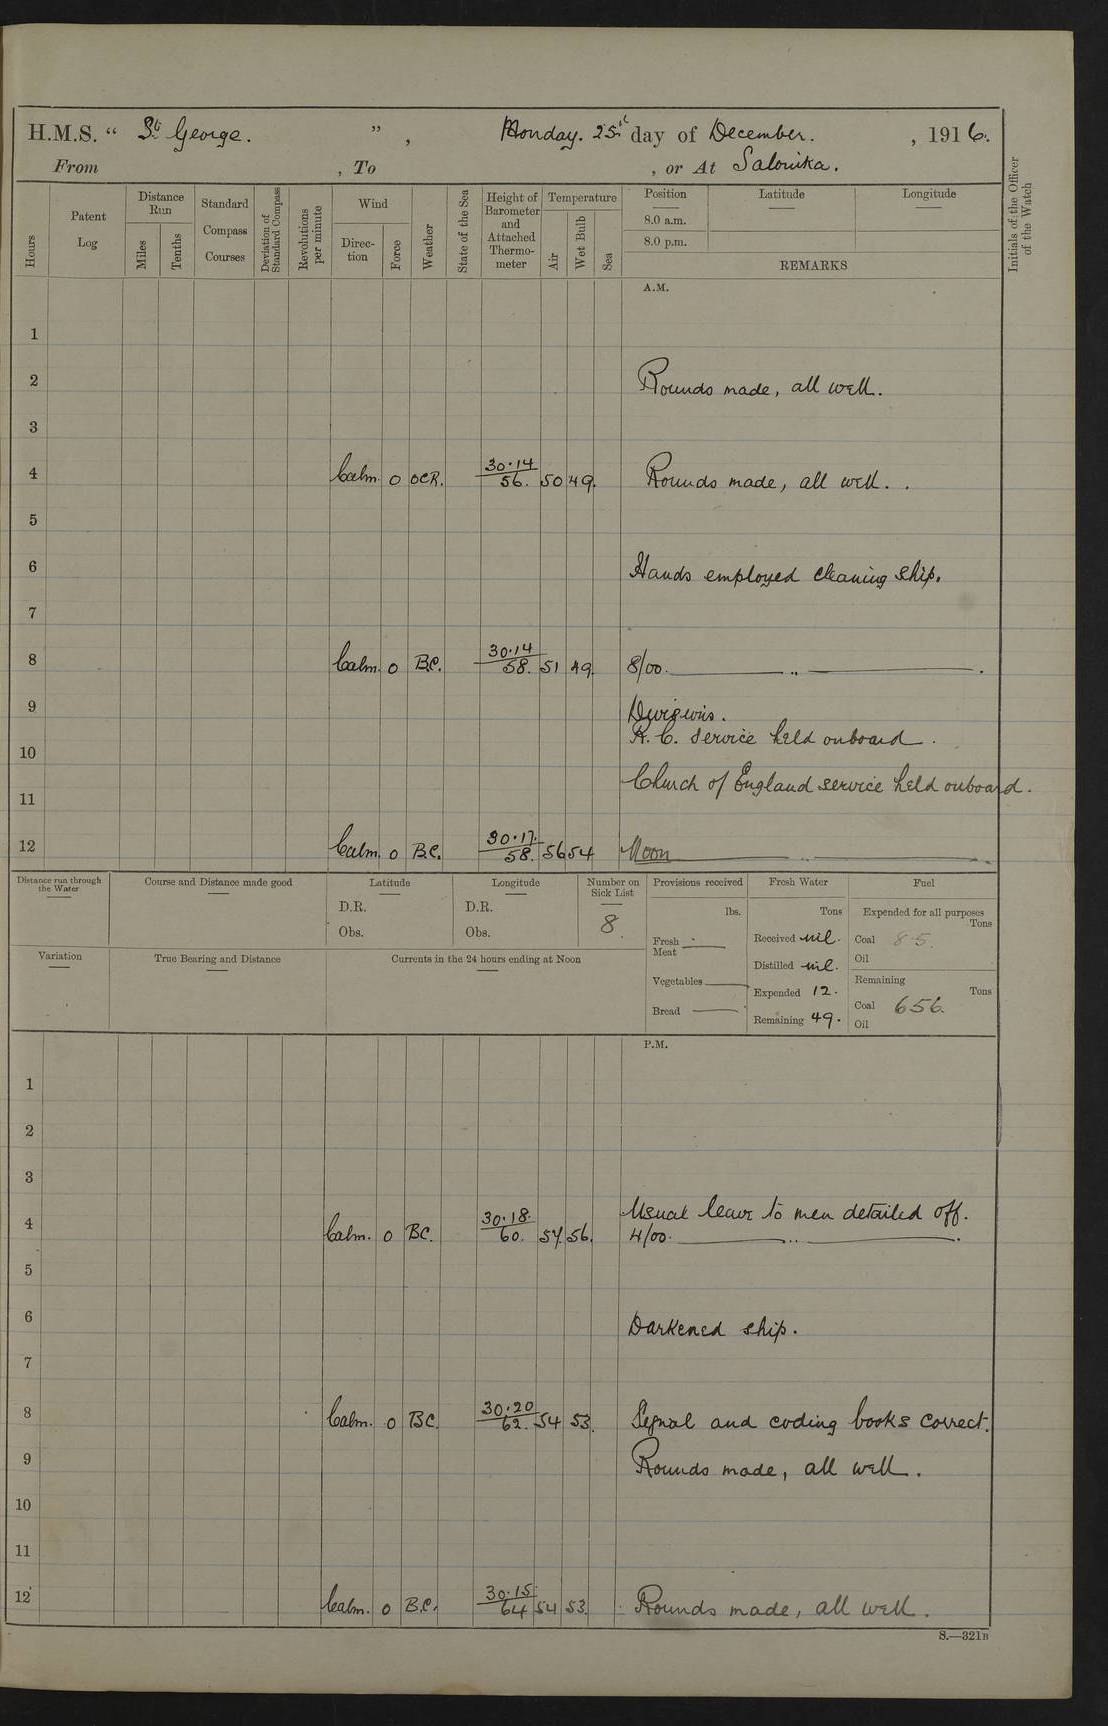 H.M.S. “ St George. ” , Monday. 25th day of December. , 1916.
From , To , or At Salonika.
Hours
Patent Log
Distance Run
Miles
Tenths
Standard Compass Courses
Deviation of Standard Compass
Revolutions per minute
Wind
Direc-tion
Force
Weather
State of the Sea
Height of Barometer and Attached Thermo-meter
Temperature
Air
Wet Bulb
Sea
Position
8.0 a.m.
8.0 p.m.
Latitude
Longitude
REMARKS
Initials of the Officer of the Watch
A.M.
1
2 Rounds made, all well.
3
4 Calm. 0 OCR. 30.14 56. 50 49. Rounds made, all well.
5
6 Hands employed cleaning ship.
7
8 Calm. 0 B.C. 30.14 58. 51 49. 8/00. ———— „ ————.
9 Divisions.
R.C. service held onboard.
10
Church of England service held onboard.
11
12 Calm. 0 B.C. 30.17. 58. 56 54 Noon ———— „ ————
Distance run through the Water
Course and Distance made good
Latitude
D.R.
Obs.
Longitude
D.R.
Obs.
Number on Sick List
8.
Provisions received
lbs.
Fresh Meat ——
Vegetables ——
Bread ——
Fresh Water
Tons
Received nil.
Distilled nil.
Expended 12.
Remaining 49.
Fuel
Expended for all purposes
Tons
Coal 8.5.
Oil
Remaining
Tons
Coal 656.
Oil
Variation
True Bearing and Distance
Currents in the 24 hours ending at Noon
P.M.
1
2
3
Usual leave to men detailed off.
4 Calm. 0 BC. 30.18. 60. 57. 56. 4/00. ———— „ ————.
5
6 Darkened ship.
7
8 Calm. 0 BC. 30.20 62. 54 53. Signal and coding books correct.
9 Rounds made, all well.
10
11
12 Calm. 0 B.C. 30.15 64 54 53. Rounds made, all well.
S.—321B